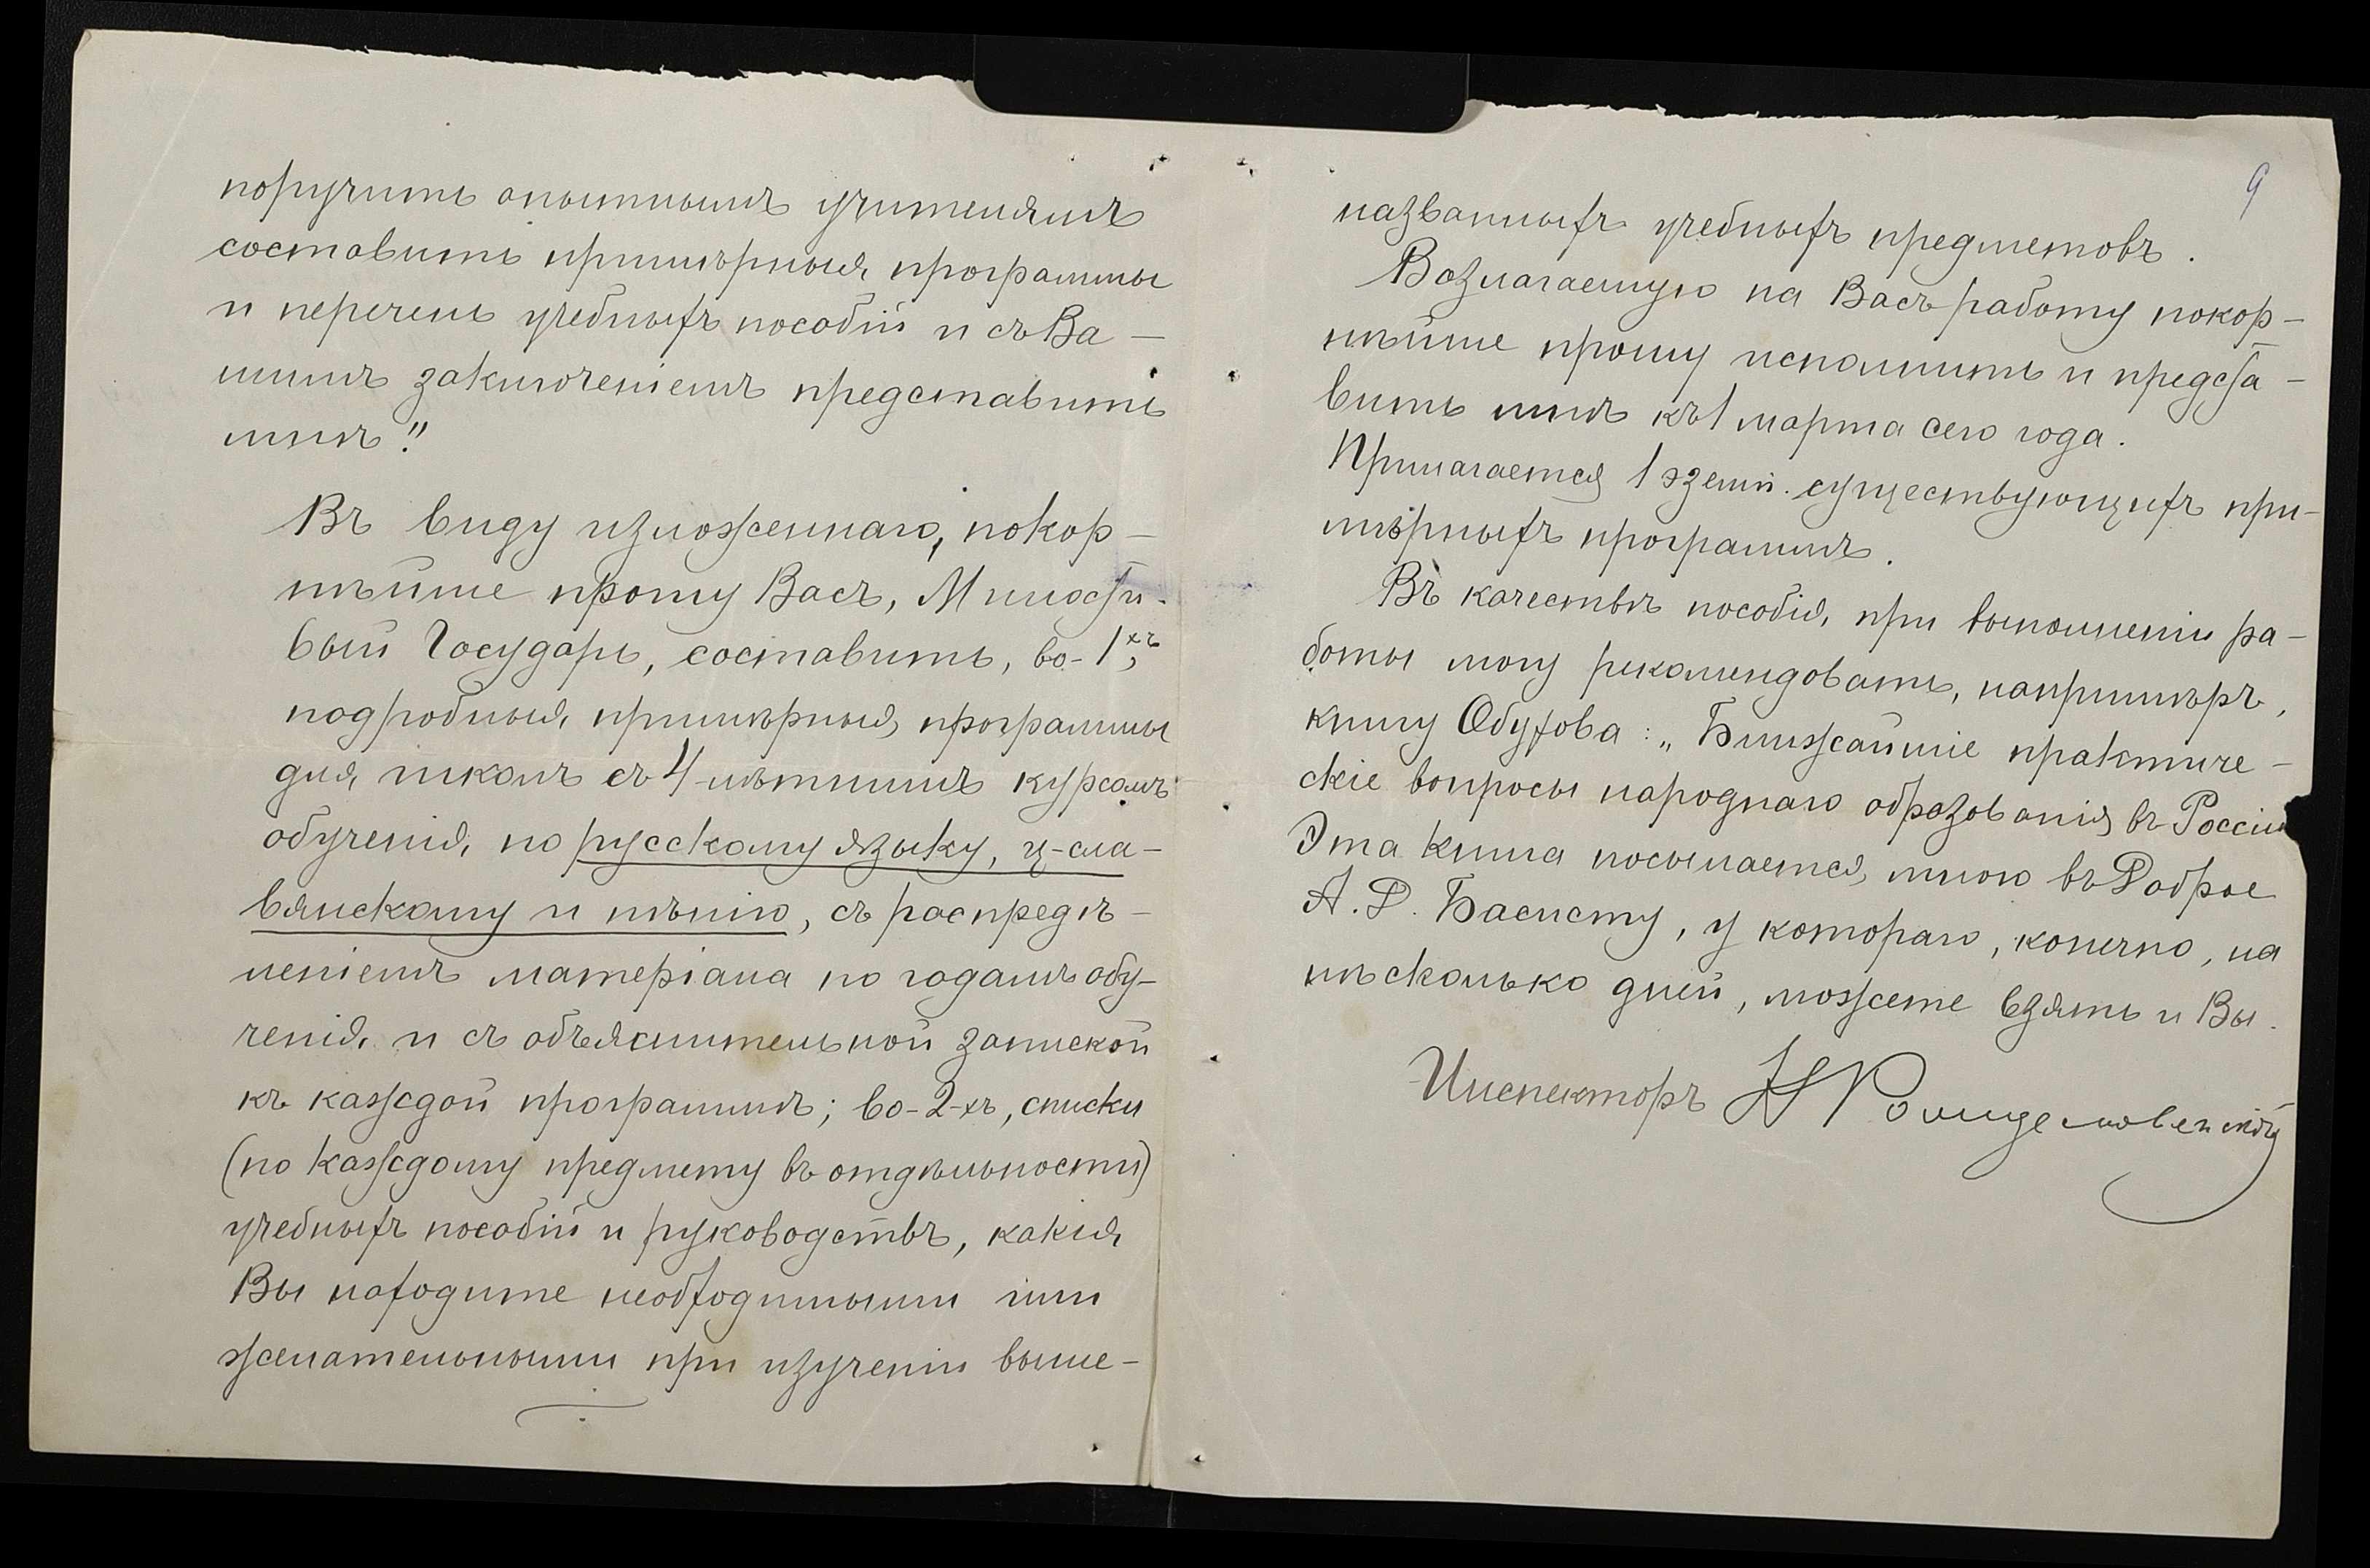 поручить опытнымъ учителямъ
составить примѣрныя программы
и перечень учебныхъ пособій и съ Ва-
шимъ заключеніемъ представить
мнѣ".
Въ виду изложеннаго, покор-
нѣйше прошу Васъ, Милости-
вый Государь, составить, во-1хъ,
подробныя примѣрныя программы
для школъ съ 4-лѣтнимъ курсомъ
обученія, по русскому языку, ц-сла-
вянскому и пѣнію, съ распредѣ-
леніемъ матеріала по годамъ обу-
ченія и съ объяснительной запиской
къ каждой программѣ; во-2-хъ, списки
(по каждому предмету въ отдѣльности)
учебныхъ пособій и руководствъ, какія
Вы находите необходимыми или
желательными при изученіи выше-
9
названныхъ учебныхъ предметовъ.
Возлагаемую на Васъ работу покор-
нѣйше прошу исполнить и предста-
вить мнѣ къ 1 марта сего года.
Прилагается 1 экземп. существующихъ при-
мѣрныхъ программъ.
Въ качествѣ пособія, при выполненіи ра-
боты могу рекомендовать, напримѣръ,
книгу Обухова: „Ближайшіе практиче-
скіе вопросы народнаго образованія въ Россіи
Эта книга посылается мною въ Доброе
А. Д. Басисту, у котораго, конечно, на
нѣсколько дней, можете взять и Вы.
Инспекторъ